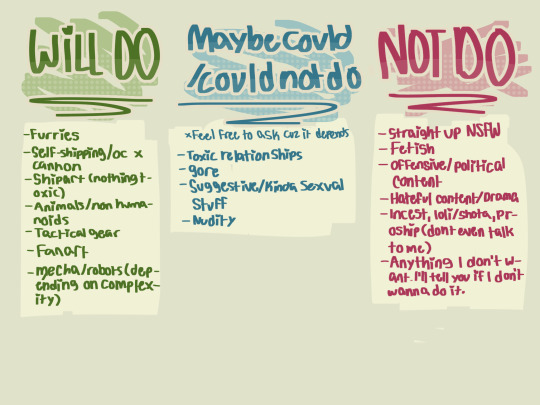 WILL DO
-Furries
-Self-shipping/oc x
cannon
-Shipart (nothing t-
oxic)
-Animals/non huma-
noids
-Tactical gear
-Fanart
-mecha/robots (dep-
ending on complex-
ity)
Maybe could
/could not do
*Feel free to ask cuz it depends
-Toxic relationships
-gore
-Suggestive/kinda sexual
stuff
-Nudity
NOT DO
-Straight up NSFW
-Fetish
-Offensive/political
content
-Hateful content/Drama
-Incest, loli/shota, pr-
oship (dont even talk
to me)
-Anything I don't w-
ant. I'll tell you if I don't
wanna do it.